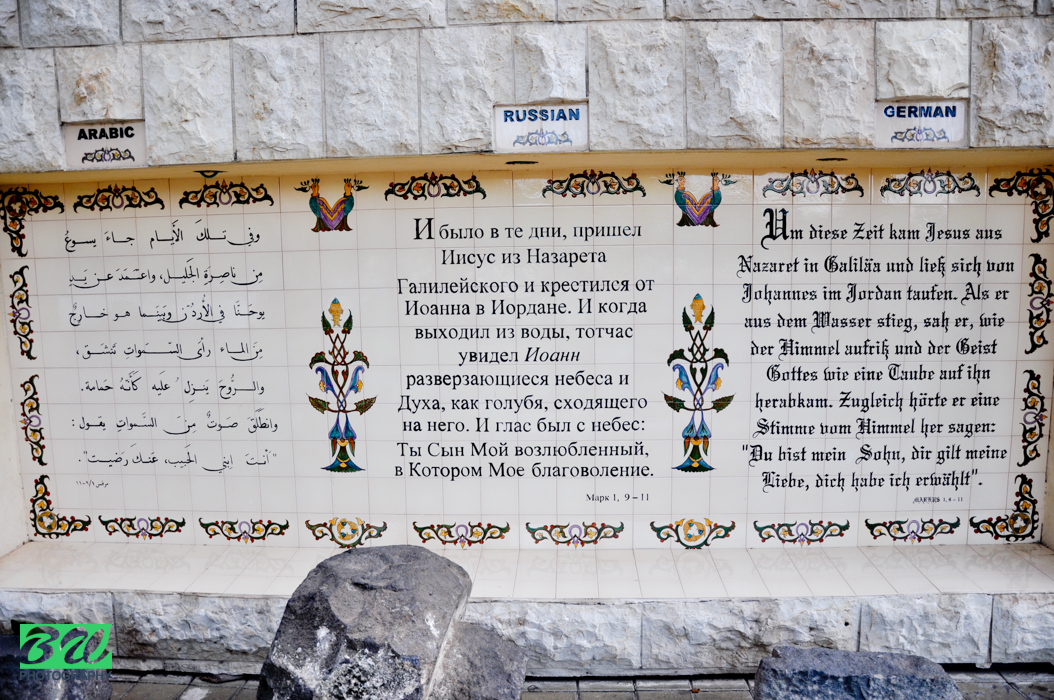 ARABIC
وفي تلك الأيام جاء يسوع
مِن ناصِرَةِ الجَليل، واعتَمَدَ عَن يَدِ
يوحَنّا في الأُردُنّ وبَينَما هو خارِجٌ
مِنَ الماء رأى السَّمَواتِ تَنشَقّ،
والرُّوحَ يَنزِلُ علَيه كَأَنَّهُ حَمامة.
وانطَلَقَ صَوتٌ مِنَ السَّمَواتِ يقول:
"أنتَ ابنِيَ الحَبيب، عَنكَ رَضيت".
مرقس ٩/١-١١
RUSSIAN
И было в те дни, пришел
Иисус из Назарета
Галилейского и крестился от
Иоанна в Иордане. И когда
выходил из воды, тотчас
увидел Иоанн
разверзающиеся небеса и
Духа, как голубя, сходящего
на него. И глас был с небес:
Ты Сын Мой возлюбленный,
в Котором Мое благоволение.
Марк 1, 9–11
GERMAN
Um diese Zeit kam Jesus aus
Nazaret in Galiläa und ließ sich von
Johannes im Jordan taufen. Als er
aus dem Wasser stieg, sah er, wie
der Himmel aufriß und der Geist
Gottes wie eine Taube auf ihn
herabkam. Zugleich hörte er eine
Stimme vom Himmel her sagen:
"Du bist mein Sohn, dir gilt meine
Liebe, dich habe ich erwählt".
MARKUS 1, 9–11
BW
PHOTOGRAPHY